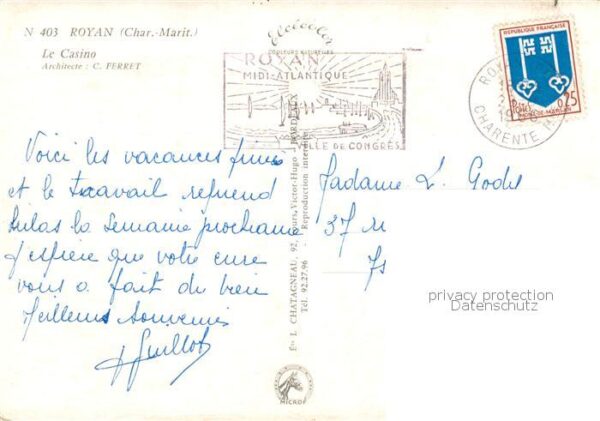 N 403 ROYAN (Char.-Marit.)
Le Casino
Architecte : C. FERRET
Elcécolor
COULEURS NATURELLES
ROYAN
MIDI-ATLANTIQUE
VILLE DE CONGRÈS
RÉPUBLIQUE FRANÇAISE
0,25
MONT-DE-MARSAN
CHARENTE
Voici les vacances finies
et le travail reprend
hélas la semaine prochaine
J'espère que votre cure
vous a fait du bien
Meilleurs souvenirs
Guillot
Éts L. CHATAGNEAU, 92, Cours Victor-Hugo - BORDEAUX
Tél. 92.27.96 - Reproduction interdite
MICRO
Madame L.
37
privacy protection
Datenschutz